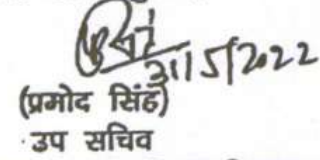 31/5/2022
(प्रमोद सिंह)
उप सचिव